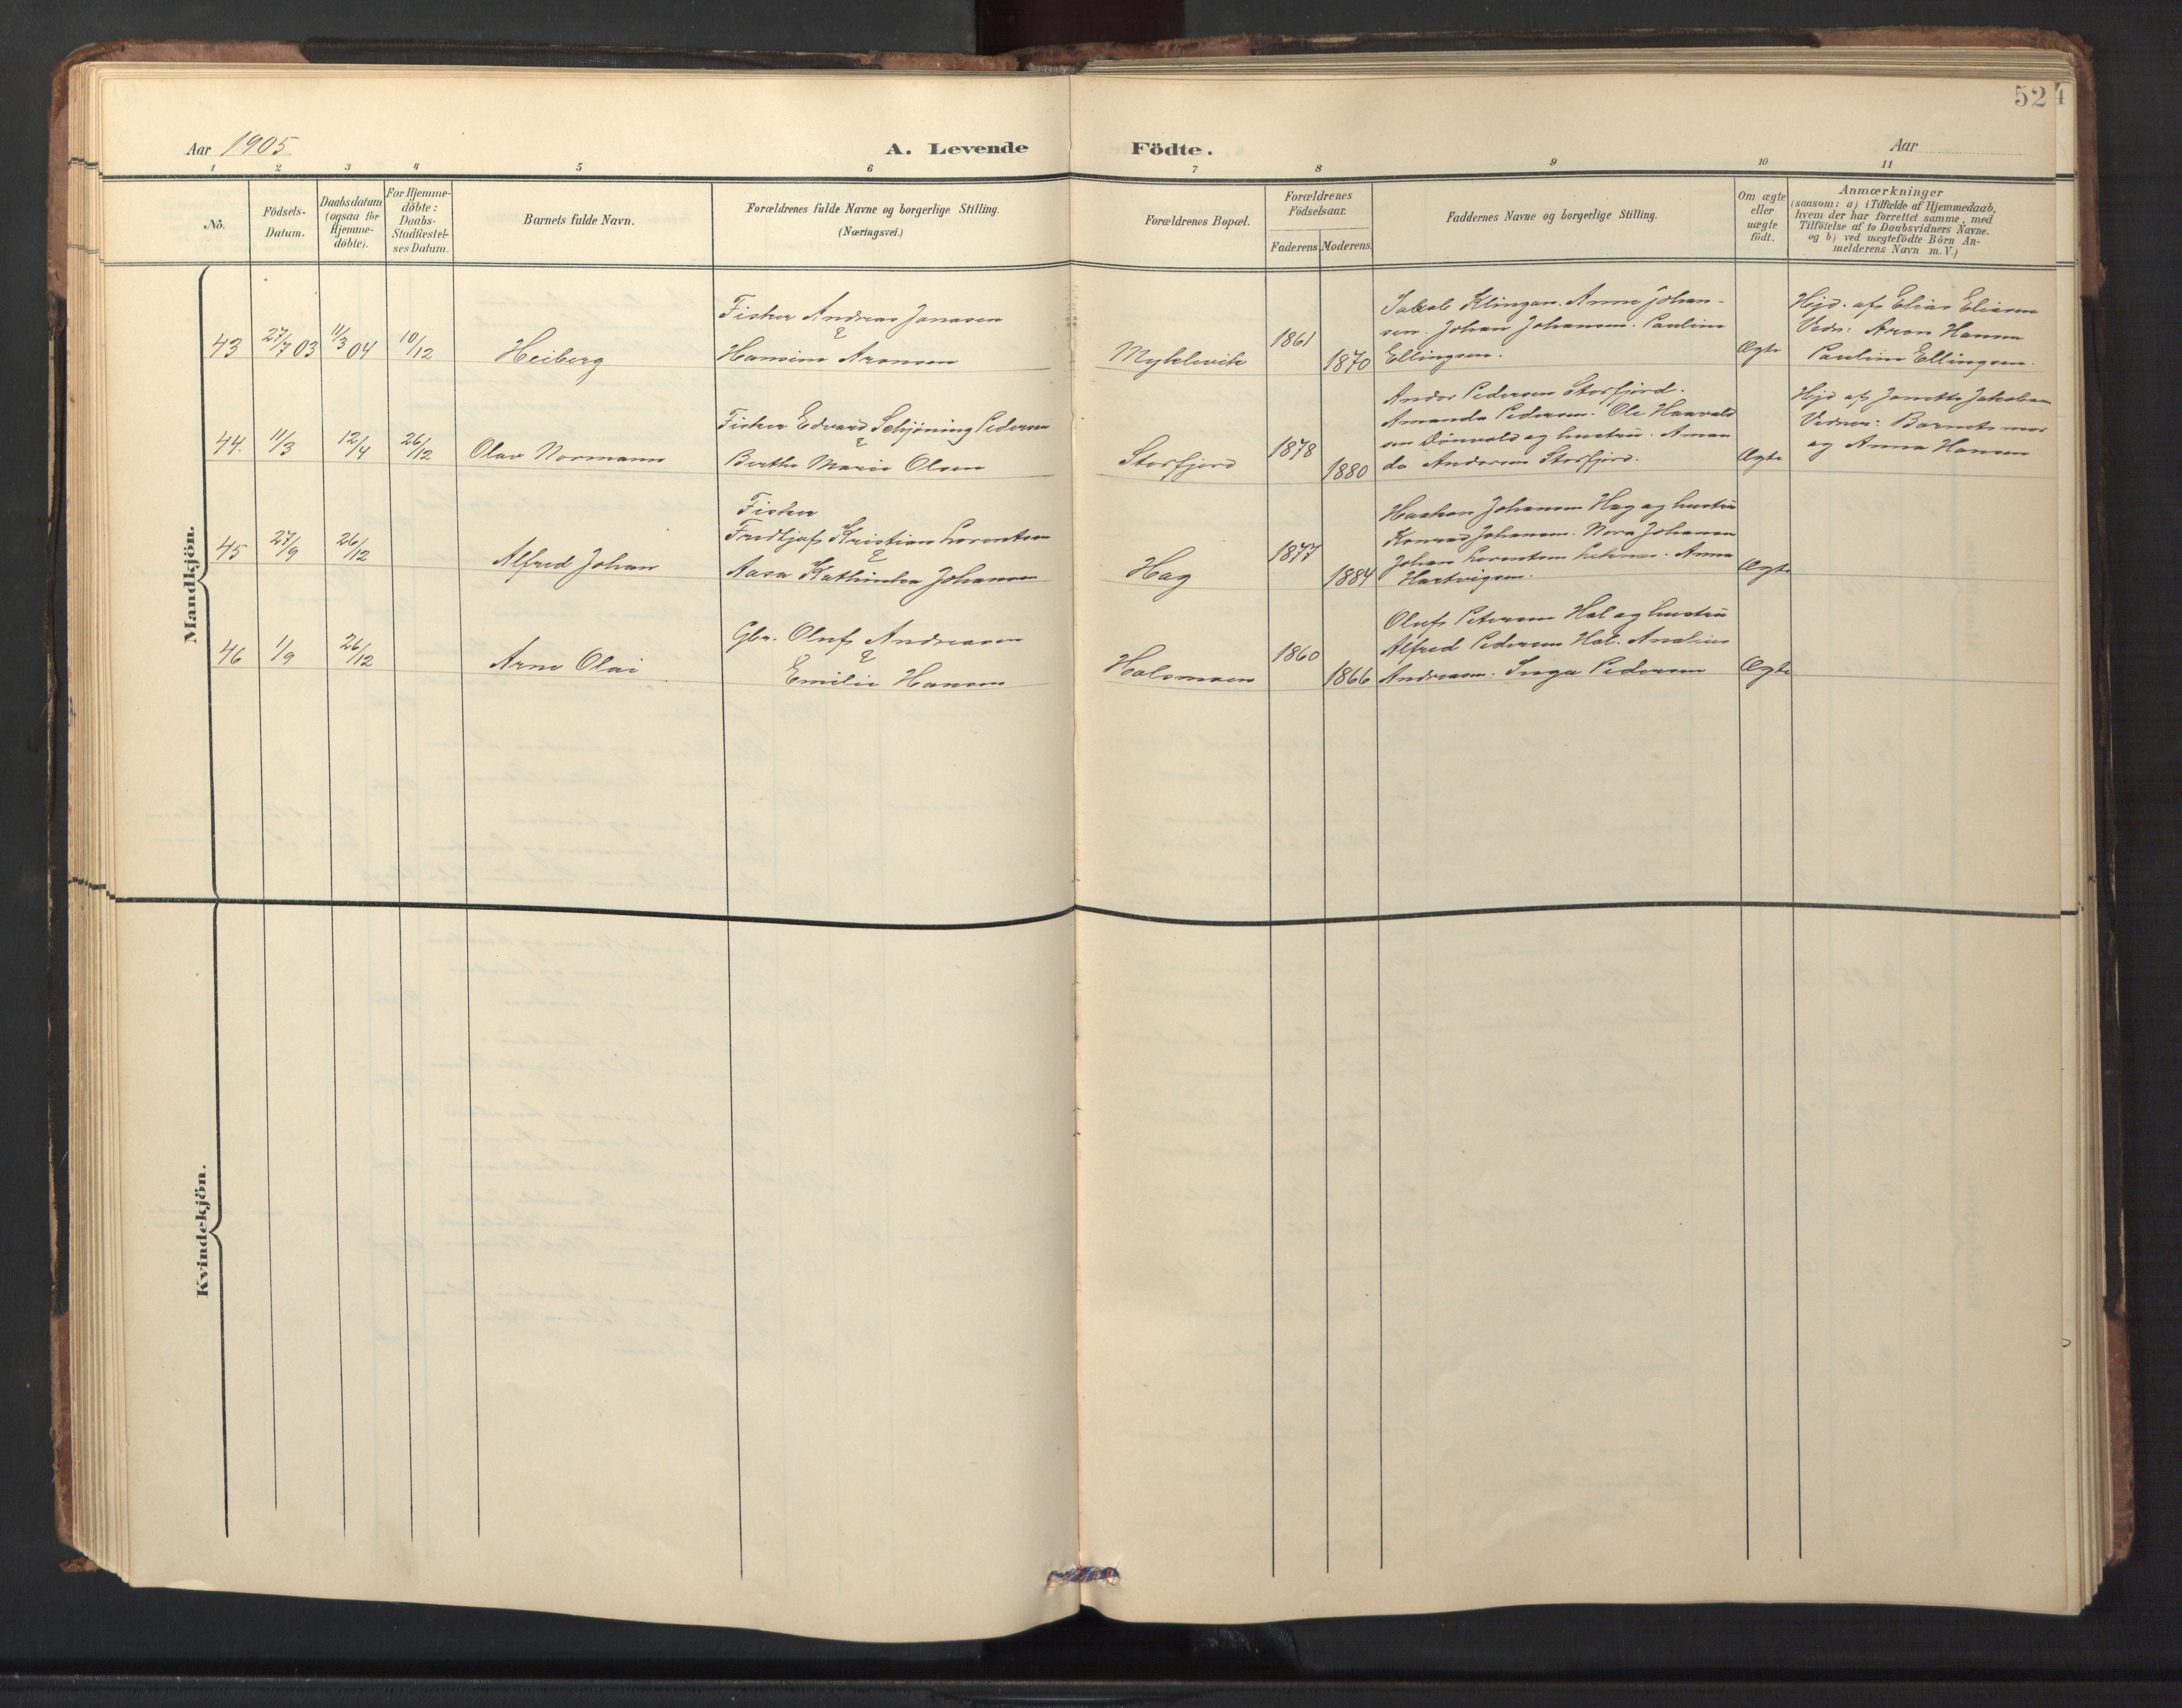 52
Aar 1905
A. Levende
Födte.
Aar
1 2 3 4 5 6 7 8 9 10 11
No.
Födsels-
Datum.
Daabsdatum
(ogsaa for
Hjemme-
döbte).
For Hjemme-
döbte:
Daabs-
Stadfæstel-
ses Datum.
Barnets fulde Navn.
Forældrenes fulde Navne og borgerlige Stilling.
(Næringsvei.)
Forældrenes Bopæl.
Forældrenes
Födselsaar.
Faderens. Moderens.
Faddernes Navne og borgerlige Stilling.
Om ægte
eller
uægte
födt.
Anmærkninger
(saasom: a) i Tilfælde af Hjemmedaab,
hvem der har forrettet samme, med
Tilföielse af to Daabsvidners Navne.
og b) ved uægtefödte Börn An-
melderens Navn m. V.)
Mandkjön.
43 27/7 03 11/3 04 10/12 Heiberg
Fisker Andreas Jonasen
&
Hansine Aronsen
Myklevik
1861
1870
Jakob Klingan. Anna Johan-
sen. Johan Johansen. Pauline
Ellingsen.
Ægte
Hjd. af Elias Eliasen
Vidn: Aron Hansen
Pauline Ellingsen.
44. 11/3 12/4 26/12 Olav Normann
Fisker Edvard Schjöning Pedersen
&
Berthe Marie Olsen
Storfjord
1878
1880
Andor Pedersen Storfjord.
Amanda Pedersen. Ole Haavald
sen Dönvold og hustru. Aman
da Andersen Storfjord.
Ægte
Hjd af Janette Jakobsen
Vidner: Barnets mor
og Anna Hansen
45 27/9 26/12 Alfred Johan
Fisker
Fridtjof Kristian Lorentsen
&
Aasa Kathinka Johansen
Hag
1877
1884
Haakon Johansen Hag og hustru
Konrad Johansen. Nora Johansen
Johan Lorentsen Leknes. Anna
Hartvigsen.
Ægte
46 1/9 26/12 Arne Olai
Gbr. Oluf Andreasen
&
Emilie Hansen
Halsmoen
1860
1866
Oluf Petersen Hal og hustru
Alfred Pedersen Hal. Analius
Andreasen. Inga Pedersen
Ægte
Kvindekjön.